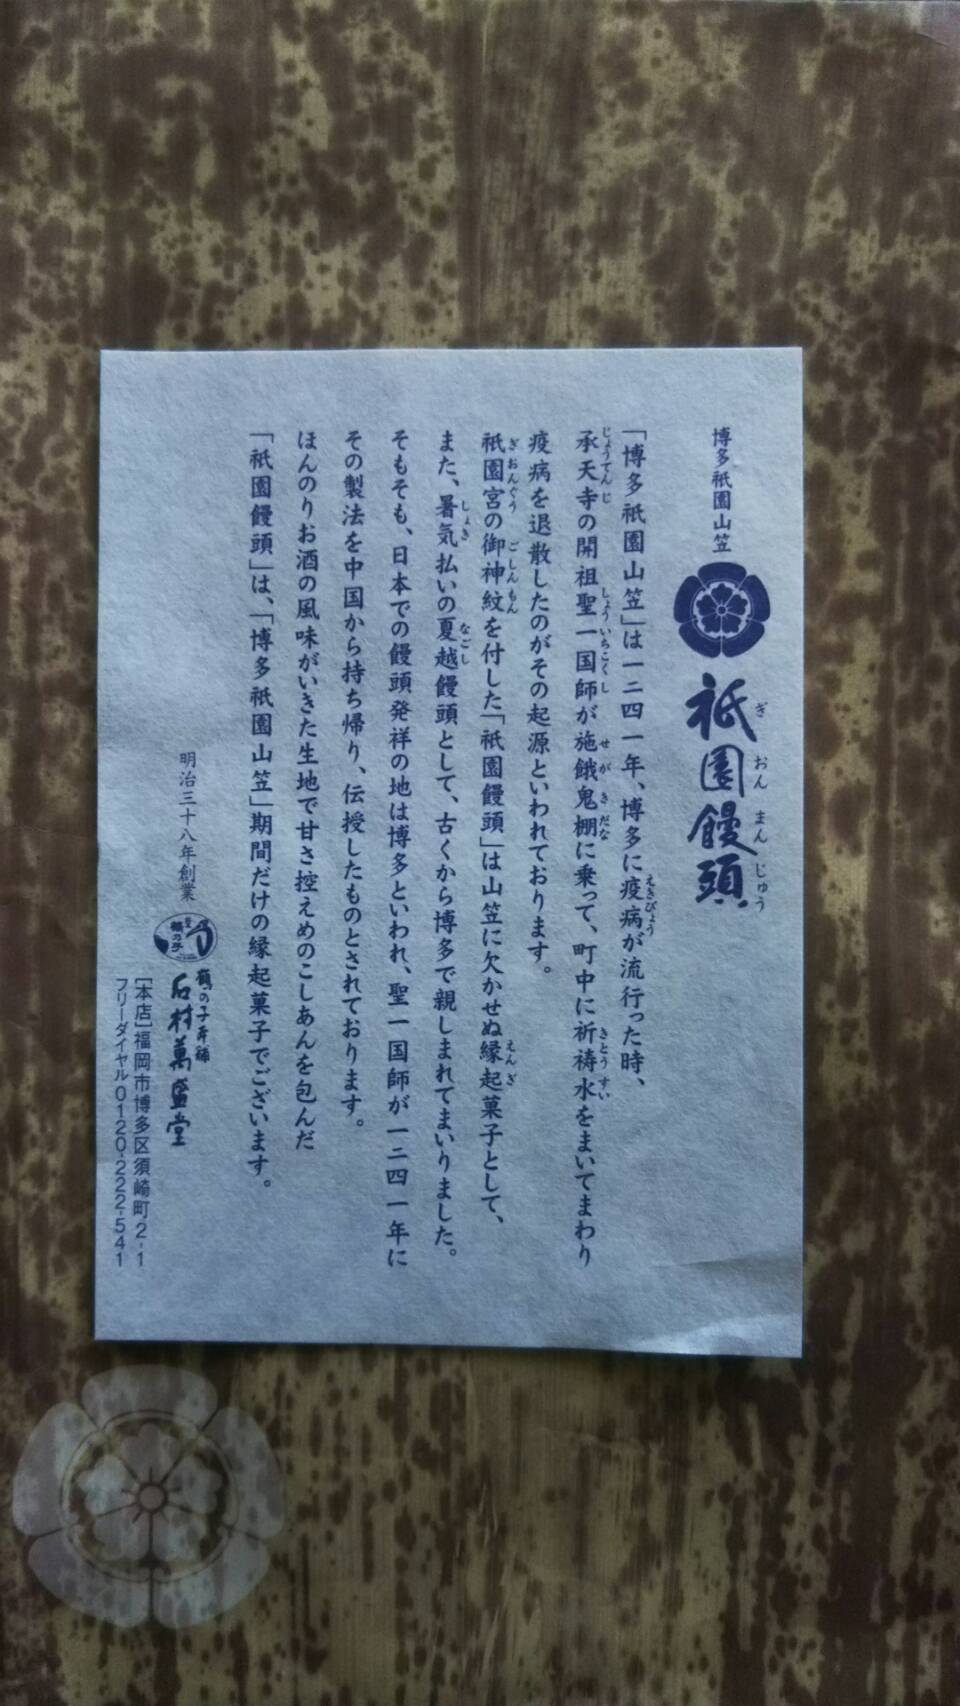 博多祇園山笠 祇園饅頭
ぎおんまんじゅう
「博多祇園山笠」は一二四一年、博多に疫病が流行った時、
えきびょう
承天寺の開祖聖一国師が施餓鬼棚に乗って、町中に祈祷水をまいてまわり
じょうてんじ しょういちこくし せがきだな きとうすい
疫病を退散したのがその起源といわれております。
祇園宮の御神紋を付した「祇園饅頭」は山笠に欠かせぬ縁起菓子として、
ぎおんぐう ごしんもん えんぎ
また、暑気払いの夏越饅頭として、古くから博多で親しまれてまいりました。
しょき なごし
そもそも、日本での饅頭発祥の地は博多といわれ、聖一国師が一二四一年に
その製法を中国から持ち帰り、伝授したものとされております。
ほんのりお酒の風味がいきた生地で甘さ控えめのこしあんを包んだ
「祇園饅頭」は、「博多祇園山笠」期間だけの縁起菓子でございます。
明治三十八年創業
鶴乃子
鶴の子本舗
石村萬盛堂
［本店］福岡市博多区須崎町2-1
フリーダイヤル0120-222-541